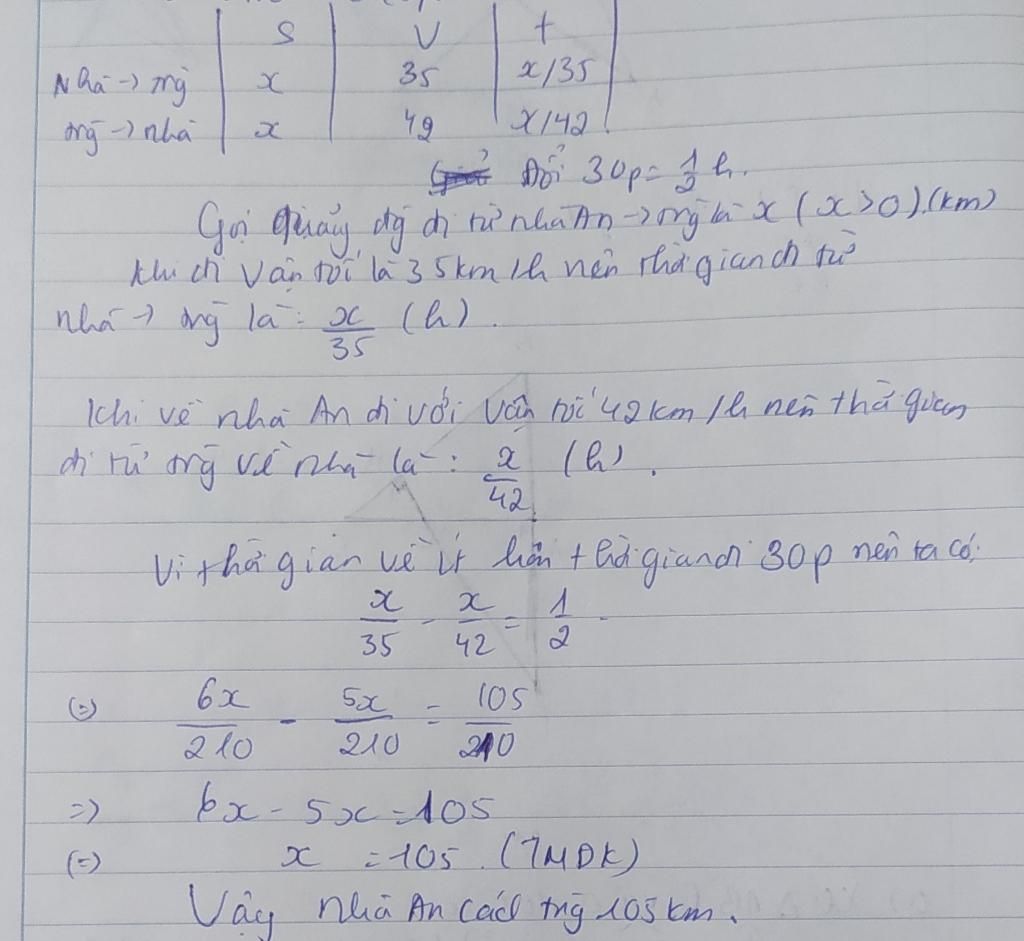 S V t
Nhà → trg x 35 x/35
trg → nhà x 42 x/42
Đổi 30p = 1/2 h.
Gọi quãng đg đi từ nhà An → trg là x (x>0).(km)
Khi đi vận tốc là 35km/h nên thời gian đi từ
nhà → trg là: x/35 (h).
Khi về nhà An đi với vận tốc 42km/h nên thời gian
đi từ trg về nhà là: x/42 (h).
Vì thời gian về ít hơn thời gian đi 30p nên ta có:
x/35 - x/42 = 1/2
(=) 6x/210 - 5x/210 = 105/210
=) 6x - 5x = 105
(=) x = 105 (TMĐK)
Vậy nhà An cách trg 105km.